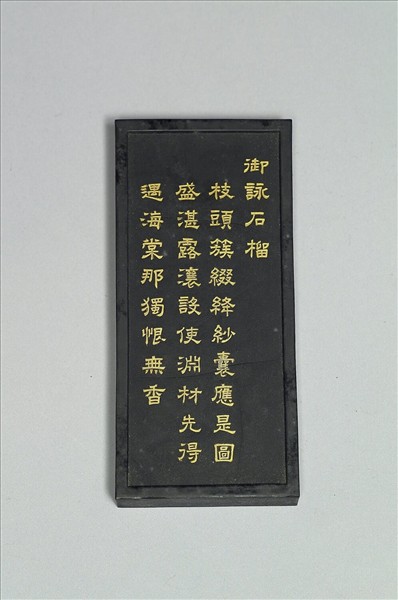 御詠石榴
枝頭簇綴絳紗囊應是圖
盛湛露瀼設使淵材先得
遇海棠那獨恨無香